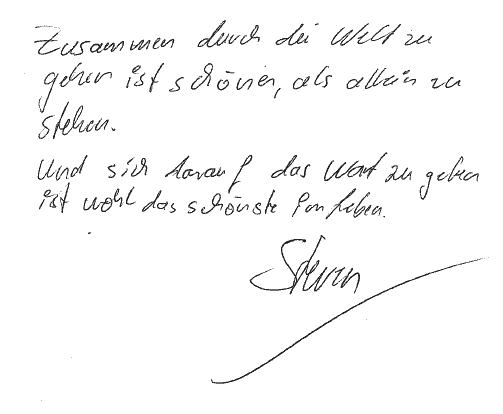 Zusammen durch die Welt zu
gehen ist schöner, als allein zu
stehen.
Und sich darauf das Wort zu geben
ist wohl das schönste im Leben.
Steven